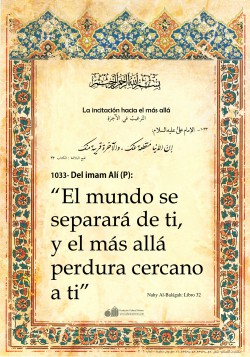 بسم الله الرحمن الرحيم
La incitación hacia el más allá
الترغيب في الآخرة
١٠٣٣- الإمام عليّ عليه السلام:
إن الدنيا منقطعة عنك، والآخرة قريبة منك
1033- Del imam Alí (P):
“El mundo se
separará de ti,
y el más allá
perdura cercano
a ti”
Nahy Al-Balágah: Libro 32